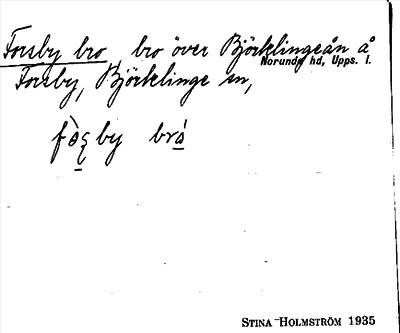 Forsby bro, bro över Björklingeån å
Norunda hd, Upps. l.
Forsby, Björklinge sn,
by brǫ́
STINA HOLMSTRÖM 1935